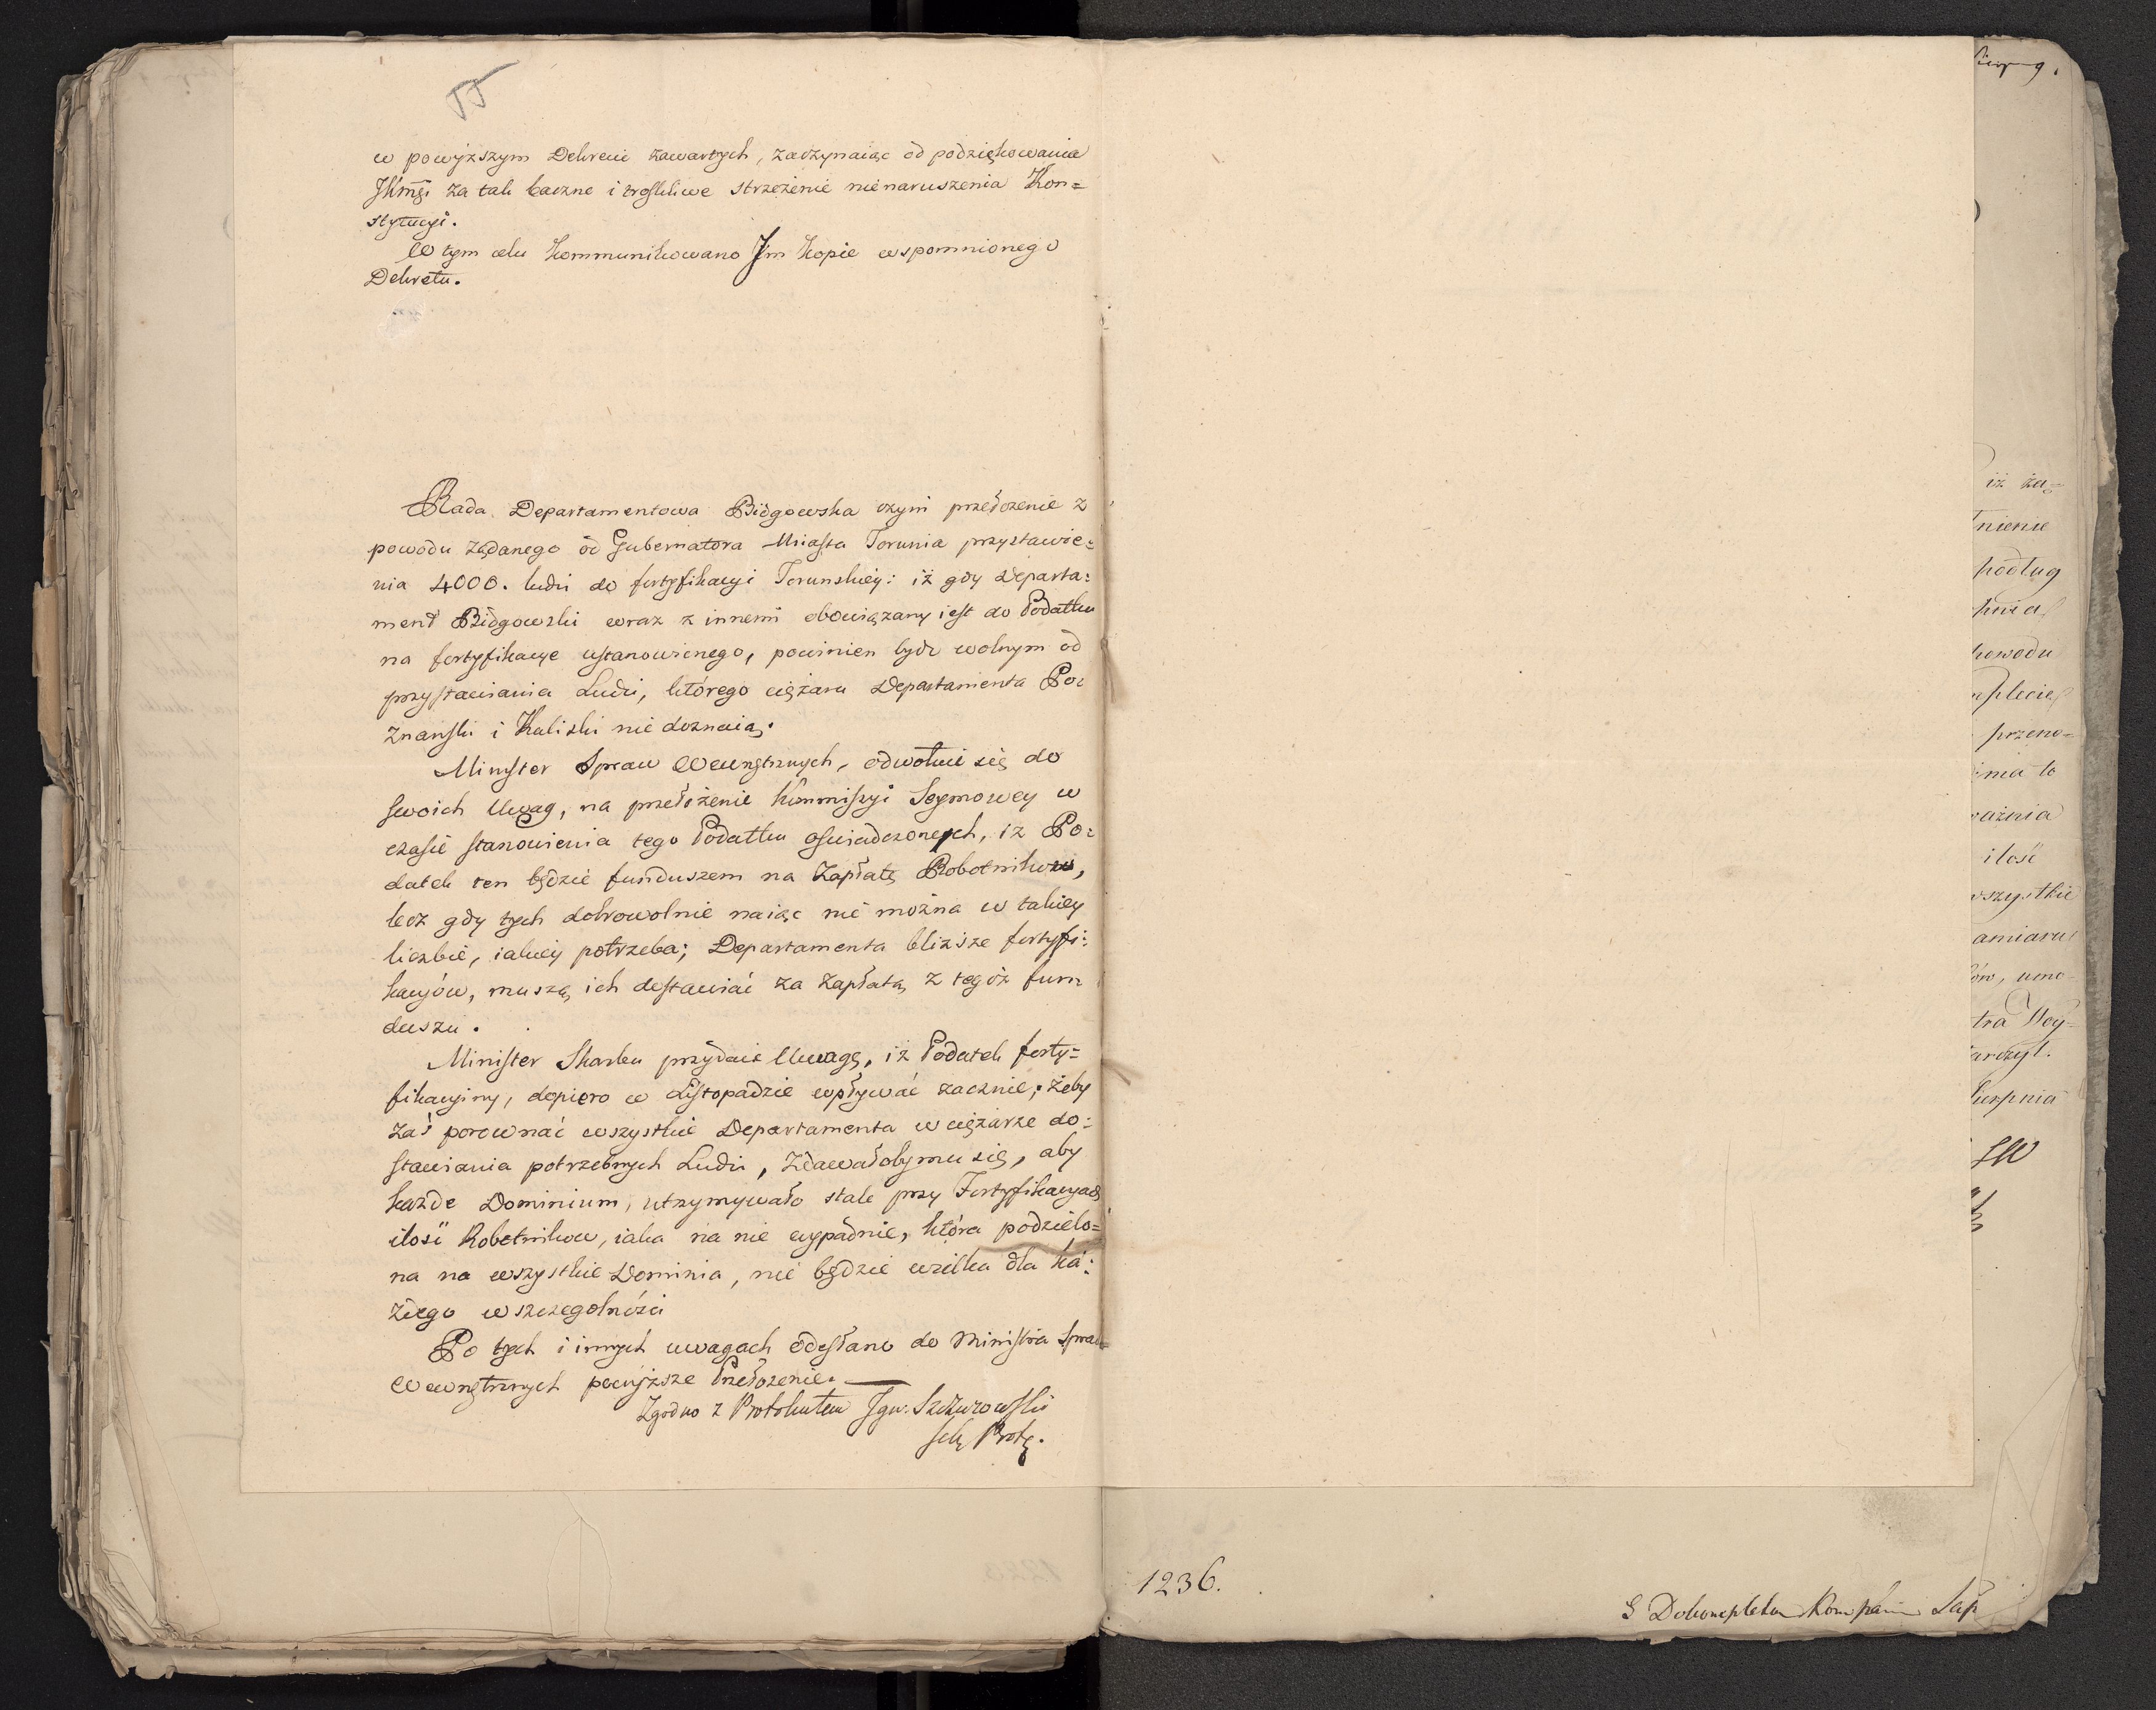 w powyższym Dekrecie zawartych, zaczynaiąc od podziękowania
JKMci za tak baczne i troskliwe strzeżenie nienaruszenia Kon=
stytucyi.
W tym celu kommunikowano Jm kopie wspomnionego
Dekretu.
Rada Departamentowa Bidgowska czyni przełożenie z
powodu żądanego od Gubernatora Miasta Torunia przystawie=
nia 4000. ludzi do fortyfikacyi Torunskiey: iż gdy Departa=
ment Bidgowski wraz z innemi obowiązany iest do Podatku
na fortyfikacye ustanowionego, powinien bydź wolnym od
przystawiania Ludzi, którego ciężaru Departamenta Po=
znanski i Kaliski nie doznaią.
Minister Spraw Wewnętrznych, odwołuie się do
swoich Uwag, na przełożenie Kommissyi Seymowey w
czasie stanowienia tego Podatku oswiadczonych, iż Po=
datek ten będzie funduszem na Zapłatę Robotnikow,
lecz gdy tych dobrowolnie naiąc nie można w takiey
liczbie, iakiey potrzeba; Departamenta bliższe fortyfi=
kacyów, muszą ich dostawiać za Zapłatą z tegoż fun
duszu.
Minister Skarbu przydaie Uwagę, iż Podatek forty=
fikacyiny, dopiero w Listopadzie wpływać zacznie; żeby
zaś porownać wszystkie Departamenta w ciężarze do=
stawiania potrzebnych Ludzi, zdawałoby mu się, aby
każde Dominium, utrzymywało stale przy Fortyfikacyach
ilość Robotnikow, iaka na nie wypadnie, która podzielo=
na na wszystkie Dominia, nie będzie wielka dla ka=
żdego w szczegolności
Po tych i innych uwagach odesłano do Ministra Spraw
Wewnętrznych powyższe Przełożenie.
Zgodno z Protokułem Ign. Szczurowski
Sek Prot.
1236.
Kompanii Sap
iż za=
nienie
podług
powodu
przeno=
ma to
ilość
wszystkie
amiaru
tra Woy=
Sierpnia